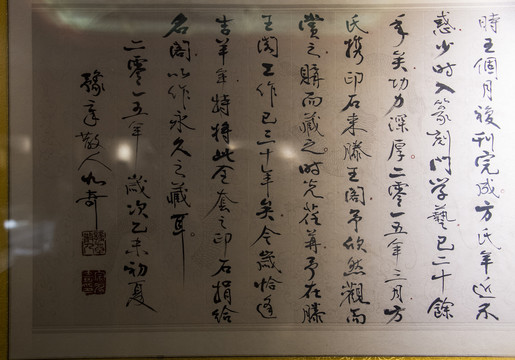 時五個月後刊完成方氏年近不
惑少時入篆刻門學藝已二十餘
年矣功力深厚二零一五年二月方
氏携印石来滕王阁予欣然觀而
賞之購而藏之時光荏苒予在滕
王阁工作已三十年矣今歲恰逢
吉羊年特将此全套之印石捐给
名阁以作永久之藏耳
二零一五年歲次乙未初夏
豫章散人